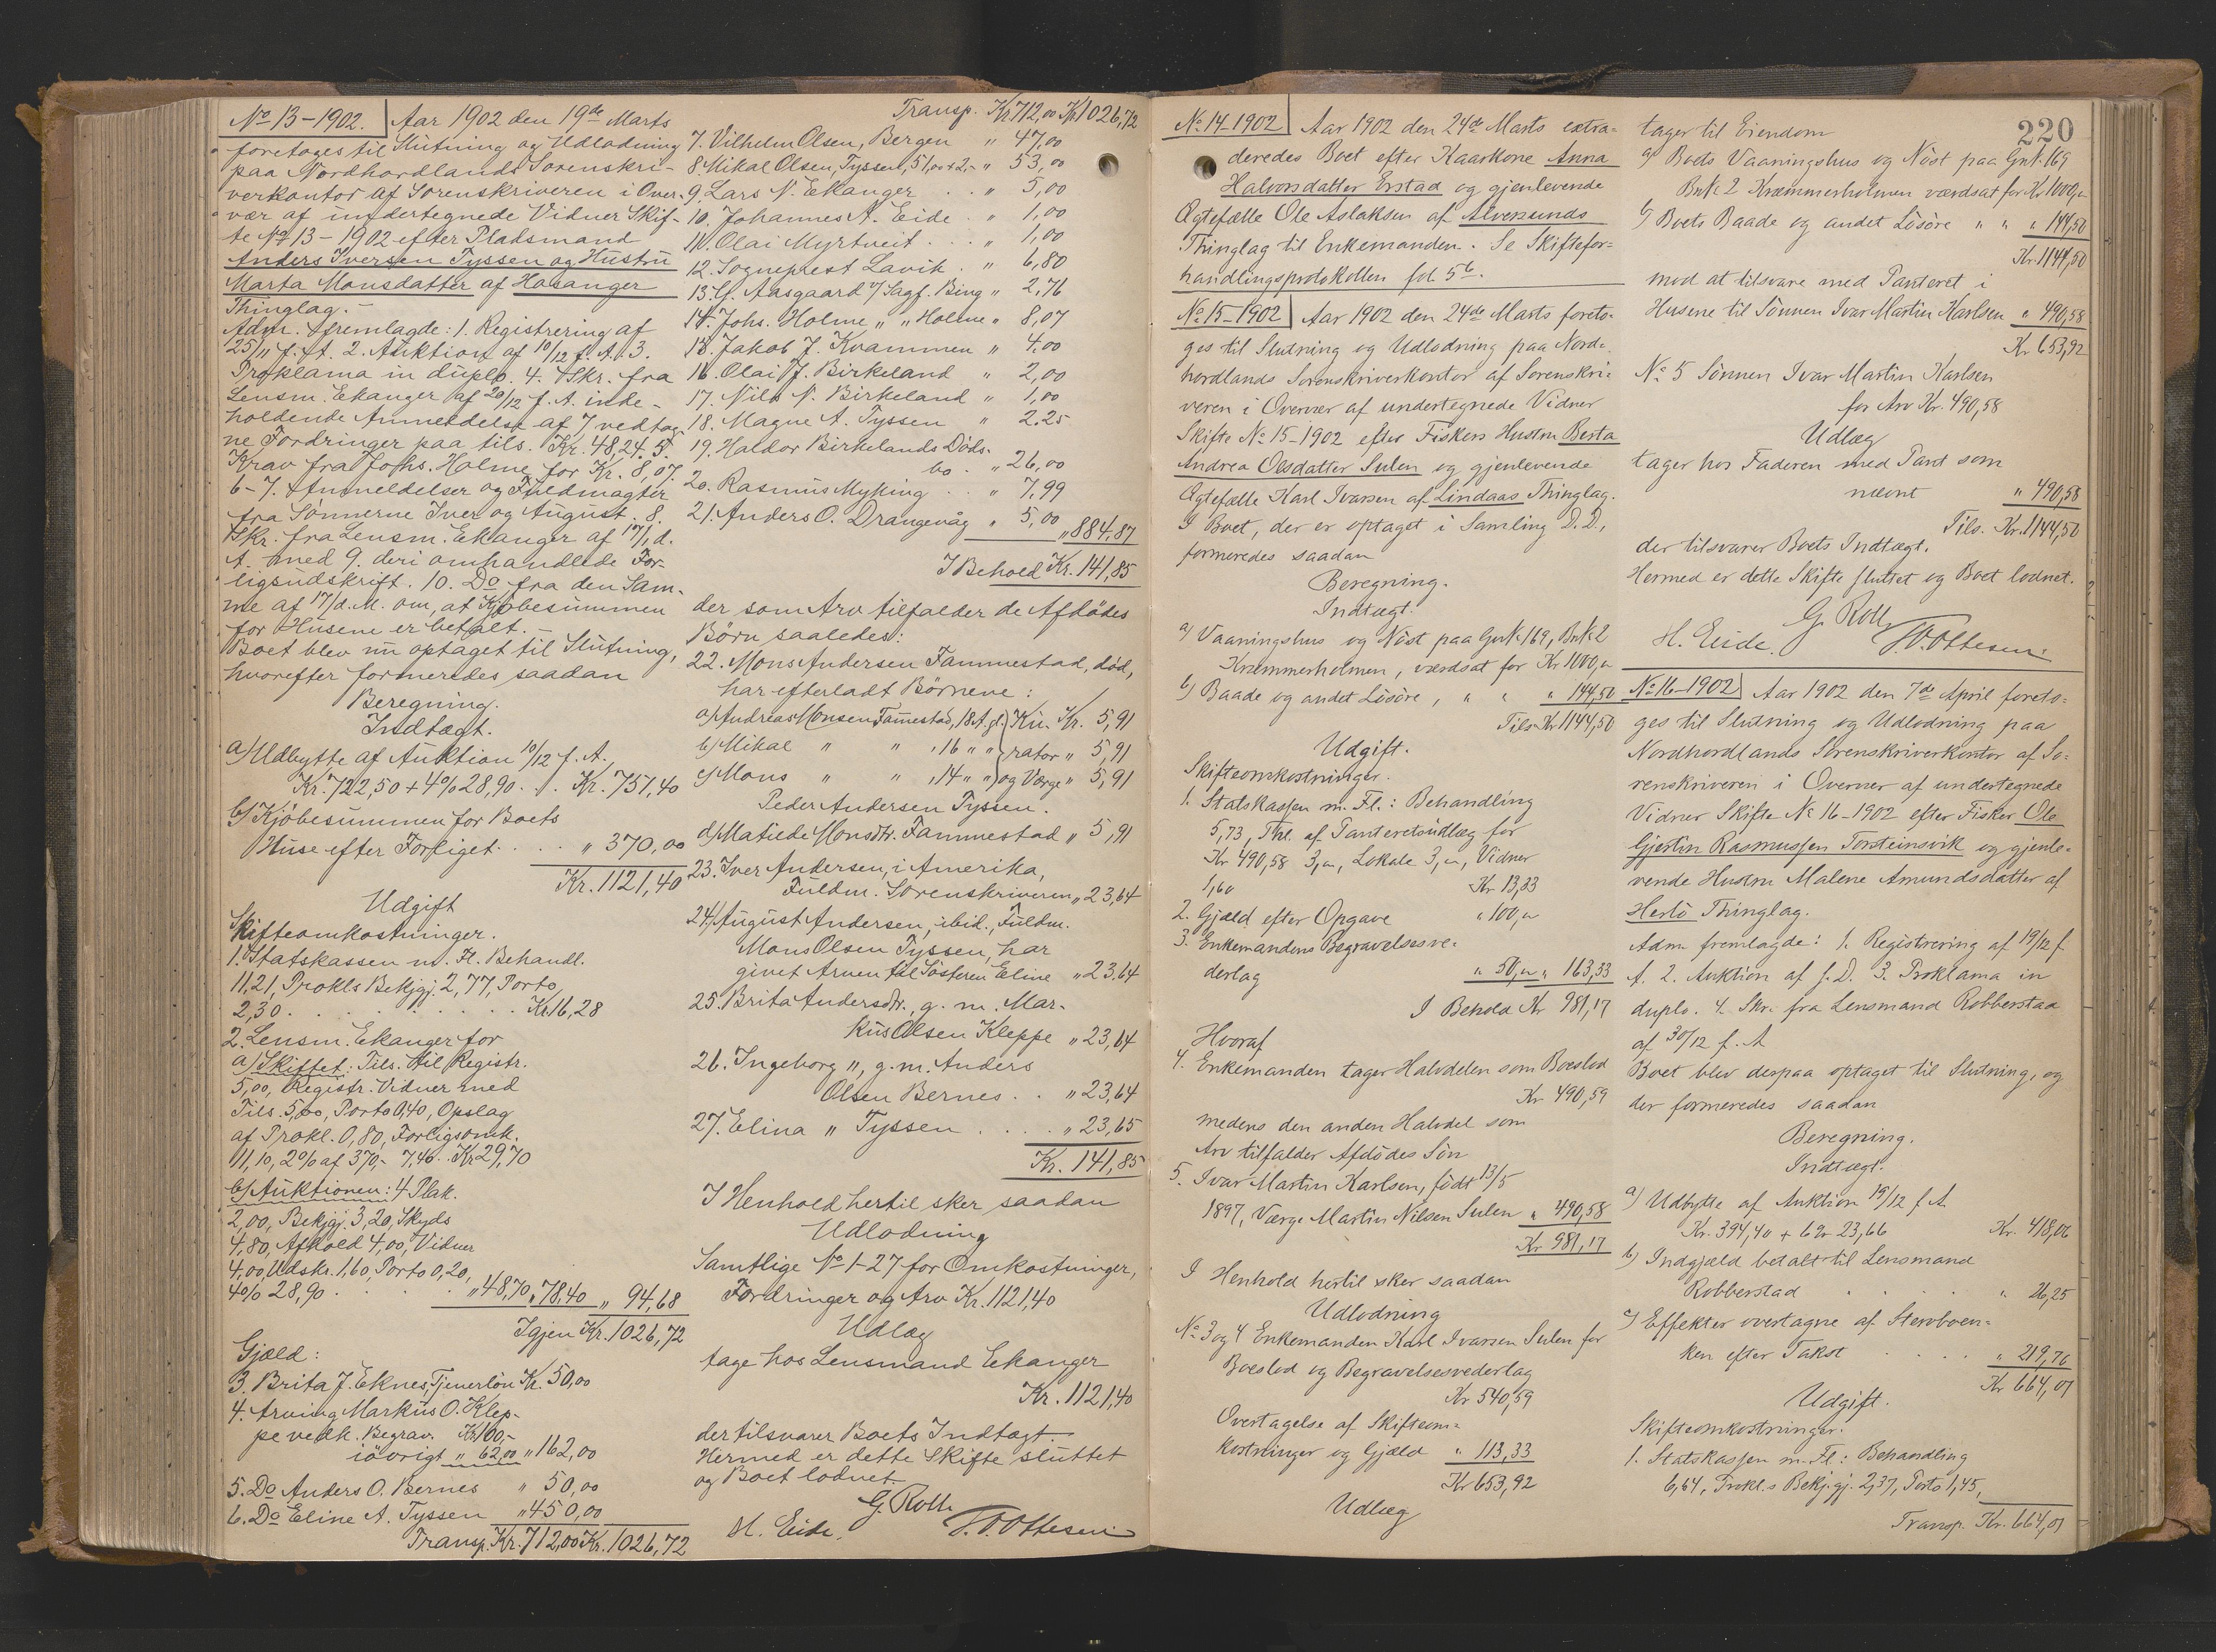 No 13-1902. Aar 1902 den 19de Marts
foretoges til Slutning og Udlodning
paa Nordhordlands Sorenskri-
verkontor af Sorenskriveren i Over-
vær af undertegnede Vidner Skif-
te No 13-1902 efter Pladsmand
Anders Iversen Tyssen og Hustru
Marta Monsdatter af Hosanger
Thinglag.-
Adm. fremlagde: 1. Registrering af
25/11 f. A. 2. Auktion af 10/12 f. A. 3.
Proklama in duplo. 4. Skr. fra
Lensm. Ekanger af 20/12 f. A. inde-
holdende Anmeldelse af 7 vedtag-
ne Fordringer paa tils. Kr. 48,24. 5.
Krav fra Johs. Holme for Kr. 8,07.
6-7. Anmeldelser og Fuldmagter
fra Sønnerne Iver og August. 8.
Skr. fra Lensm. Ekanger af 17/1 d.
A. med 9. deri omhandlede For-
ligsudskrift. 10. Do fra den Sam-
me af 17/d. M. om, at Kjøbesummen
for Husene er betalt.-
Boet blev nu optaget til Slutning,
hvorefter formeredes saadan
Beregning.
Indtægt.
a) Udbytte af Auktion 10/12 f. A.
Kr. 722,50 + 4% 28,90 . . Kr. 751,40
b) Kjøbesummen for Boets
Huse efter Forliget . . . " 370,00
Kr. 1121,40
Udgift
Skifteomkostninger.
1. Statskassen m. Fl. Behandl.
11,21, Prokls Bekjgj. 2,77, Porto
2,30 . . . . . . . . Kr. 16,28
2. Lensm. Ekanger for
a) Skiftet: Tils. til Registr.
5,00, Registr. Vidner med
Tils. 5,60, Porto 0,40, Opslag
af Prokl. 0,80, Forligsomk.
11,10, 2% af 370,- 7,40 . Kr 29,70
b) Auktionen: 4 Plak.
2,00, Bekjgj. 3,20, Skyds
4,80, Afhold 4,00, Vidner
4,00 Udskr. 1,60, Porto 0,20,
4% 28,90 . . . . " 48,70 " 78,40 " 94,68
Igjen Kr. 1026,72
Gjæld:
3. Brita J. Eknes, Tjenerløn Kr. 50,00
4. Arving Markus O. Klep-
pe vedk. Begrav. Kr. 100,-
iøvrigt " 62,00 " 162,00
5. Do Anders O. Bernes " 50,00
6. Do Eline A. Tyssen " 450,00
Transp. Kr. 712,00 Kr. 1026,72
Transp. Kr. 712,00 Kr. 1026,72
7. Vilhelm Olsen, Bergen " 47,00
8. Mikal Olsen, Tyssen, 51,00 + 2,- " 53,00
9. Lars N. Ekanger . . " 5,00
10. Johannes A. Eide . " 1,00
11. Olai Myrtveit . . . " 1,00
12. Sogneprest Lavik . " 6,80
13. G. Aasgaard v/ Sagf. Bing " 2,76
14. Johs. Holme " " Holme " 8,07
15. Jakob J. Kvammen " 4,00
16. Olai J. Birkeland " 2,00
17. Nils N. Birkeland " 1,00
18. Magne A. Tyssen " 2.25
19. Haldor Birkelands Døds-
bo . " 26,00
20. Rasmus Myking . . " 7,99
21. Anders O. Drangevåg " 5,00 " 884,87
I Behold Kr. 141,85
der som Arv tilfalder de Afdødes
Børn saaledes:
22. Mons Andersen Fammestad, død,
har efterladt Børnene:
a) Andreas Monsen Fammestad, 18 A. gl. Ku- Kr. 5,91
b) Mikal " " , 16 " " rator " 5,91
c) Mons " " , 14 " " og Værge " 5,91
Peder Andersen Tyssen.
d) Matilde Monsdtr. Fammestad " 5,91
23. Iver Andersen, i Amerika,
Fuldm. Sorenskriveren " 23,64
24. August Andersen, ibid., Fuldm.
Mons Olsen Tyssen, har
givet Arven til Søsteren Eline " 23,64
25. Brita Andersdtr., g. m. Mar-
kus Olsen Kleppe " 23,64
26. Ingeborg ", g. m. Anders
Olsen Bernes . . " 23,64
27. Elina " Tyssen . . . . " 23,65
Kr. 141,85
I Henhold hertil sker saadan
Udlodning
Samtlige No 1-27 for Omkostninger,
Fordringer og Arv Kr. 1121,40
Udlæg
tage hos Lensmand Ekanger
Kr. 1121,40
der tilsvarer Boets Indtægt.
Hermed er dette Skifte sluttet
og Boet lodnet.
G. Roll
H. Eide. T. O. Ottesen
No 14-1902 Aar 1902 den 24de Marts extra=
deredes Boet efter Kaarkone Anna
Halvorsdatter Erstad og gjenlevende
Ægtefælle Ole Aslaksen af Alversunds
Thinglag til Enkemanden. Se Skiftefor=
handlingsprotokollen fol. 56.
No 15-1902 Aar 1902 den 24de Marts foreto-
ges til Slutning og Udlodning paa Nord-
hordlands Sorenskriverkontor af Sorenskri-
veren i Overvær af undertegnede Vidner
Skifte No 15-1902 efter Fiskers Hustru Berta
Andrea Olsdatter Sulen og gjenlevende
Ægtefælle Karl Ivarsen af Lindaas Thinglag.
I Boet, der er optaget i Samling D. D.,
formeredes saadan
Beregning.
Indtægt.
a) Vaaningshus og Nøst paa Gnk. 169, Bnk. 2
Kræmmerholmen, værdsat for Kr 1000,00
b) Baade og andet Løsøre, " " " 144,50
Tils. Kr 1144,50
Udgift.
Skifteomkostninger.
1. Statskassen m. Fl.: Behandling
5,73, Thl. af Panteretsudlæg for
Kr 490,58 3,00, Lokale 3,00, Vidner
1,60 Kr 13,33
2. Gjæld efter Opgave " 100,00
3. Enkemandens Begravelsesve-
derlag " 50,00 " 163,33
I Behold Kr 981,17
Hvoraf
4. Enkemanden tager Halvdelen som Boeslod
Kr 490,59
medens den anden Halvdel som
Arv tilfalder Afdødes Søn
5. Ivar Martin Karlsen, født 13/5
1897, Værge Martin Nilsen Sulen " 490,58
Kr 981,17
I Henhold hertil sker saadan
Udlodning
No 3 og 4 Enkemanden Karl Ivarsen Sulen for
Boeslod og Begravelsesvederlag
Kr 540,59
Overtagelse af Skifteom-
kostninger og Gjæld " 113,33
Kr 653,92
Udlæg
220
tager til Eiendom
a) Boets Vaaningshus og Nøst paa Gnk. 169
Bnk. 2 Kræmmerholmen værdsat for Kr 1000,00
b) Boets Baade og andet Løsøre " " " 144,50
Kr. 1144,50
mod at tilsvare med Panteret i
Husene til Sønnen Ivar Martin Karlsen " 490,58
Kr 653,92
No 5 Sønnen Ivar Martin Karlsen
for Arv Kr. 490,58
Udlæg
tager hos Faderen med Pant som
nævnt " 490,58
Tils. Kr. 1144,50
der tilsvarer Boets Indtægt.
Hermed er dette Skifte sluttet og Boet lodnet.
G. Roll
H. Eide. T. O. Ottesen
No 16-1902 Aar 1902 den 7de April foreto=
ges til Slutning og Udlodning paa
Nordhordlands Sorenskriverkontor af So=
renskriveren i Overvær af undertegnede
Vidner Skifte No 16-1902 efter Fisker Ole
Gjertin Rasmussen Torsteinsvik og gjenle-
vende Hustru Malene Amundsdatter af
Herlø Thinglag.
Adm. fremlagde: 1. Registrering af 19/12 f.
A. 2. Auktion af s. D. 3. Proklama in
duplo. 4. Skr. fra Lensmand Robberstad
af 30/12 f. A
Boet blev derpaa optaget til Slutning, og
der formeredes saadan
Beregning.
Indtægt.
a) Udbytte af Auktion 19/12 f. A
Kr. 394,40 + 6% 23,66 Kr. 418,06
b) Indgjæld betalt til Lensmand
Robberstad . . . . " 26,25
c) Effekter overtagne af Stervboen-
ken efter Takst . . . . " 219,76
Kr 664,07
Udgift.
Skifteomkostninger.
1. Statskassen m. Fl.: Behandling
6,64, Prokl.s Bekj.gj. 2,37, Porto 1,45,
Transp. Kr. 664,07